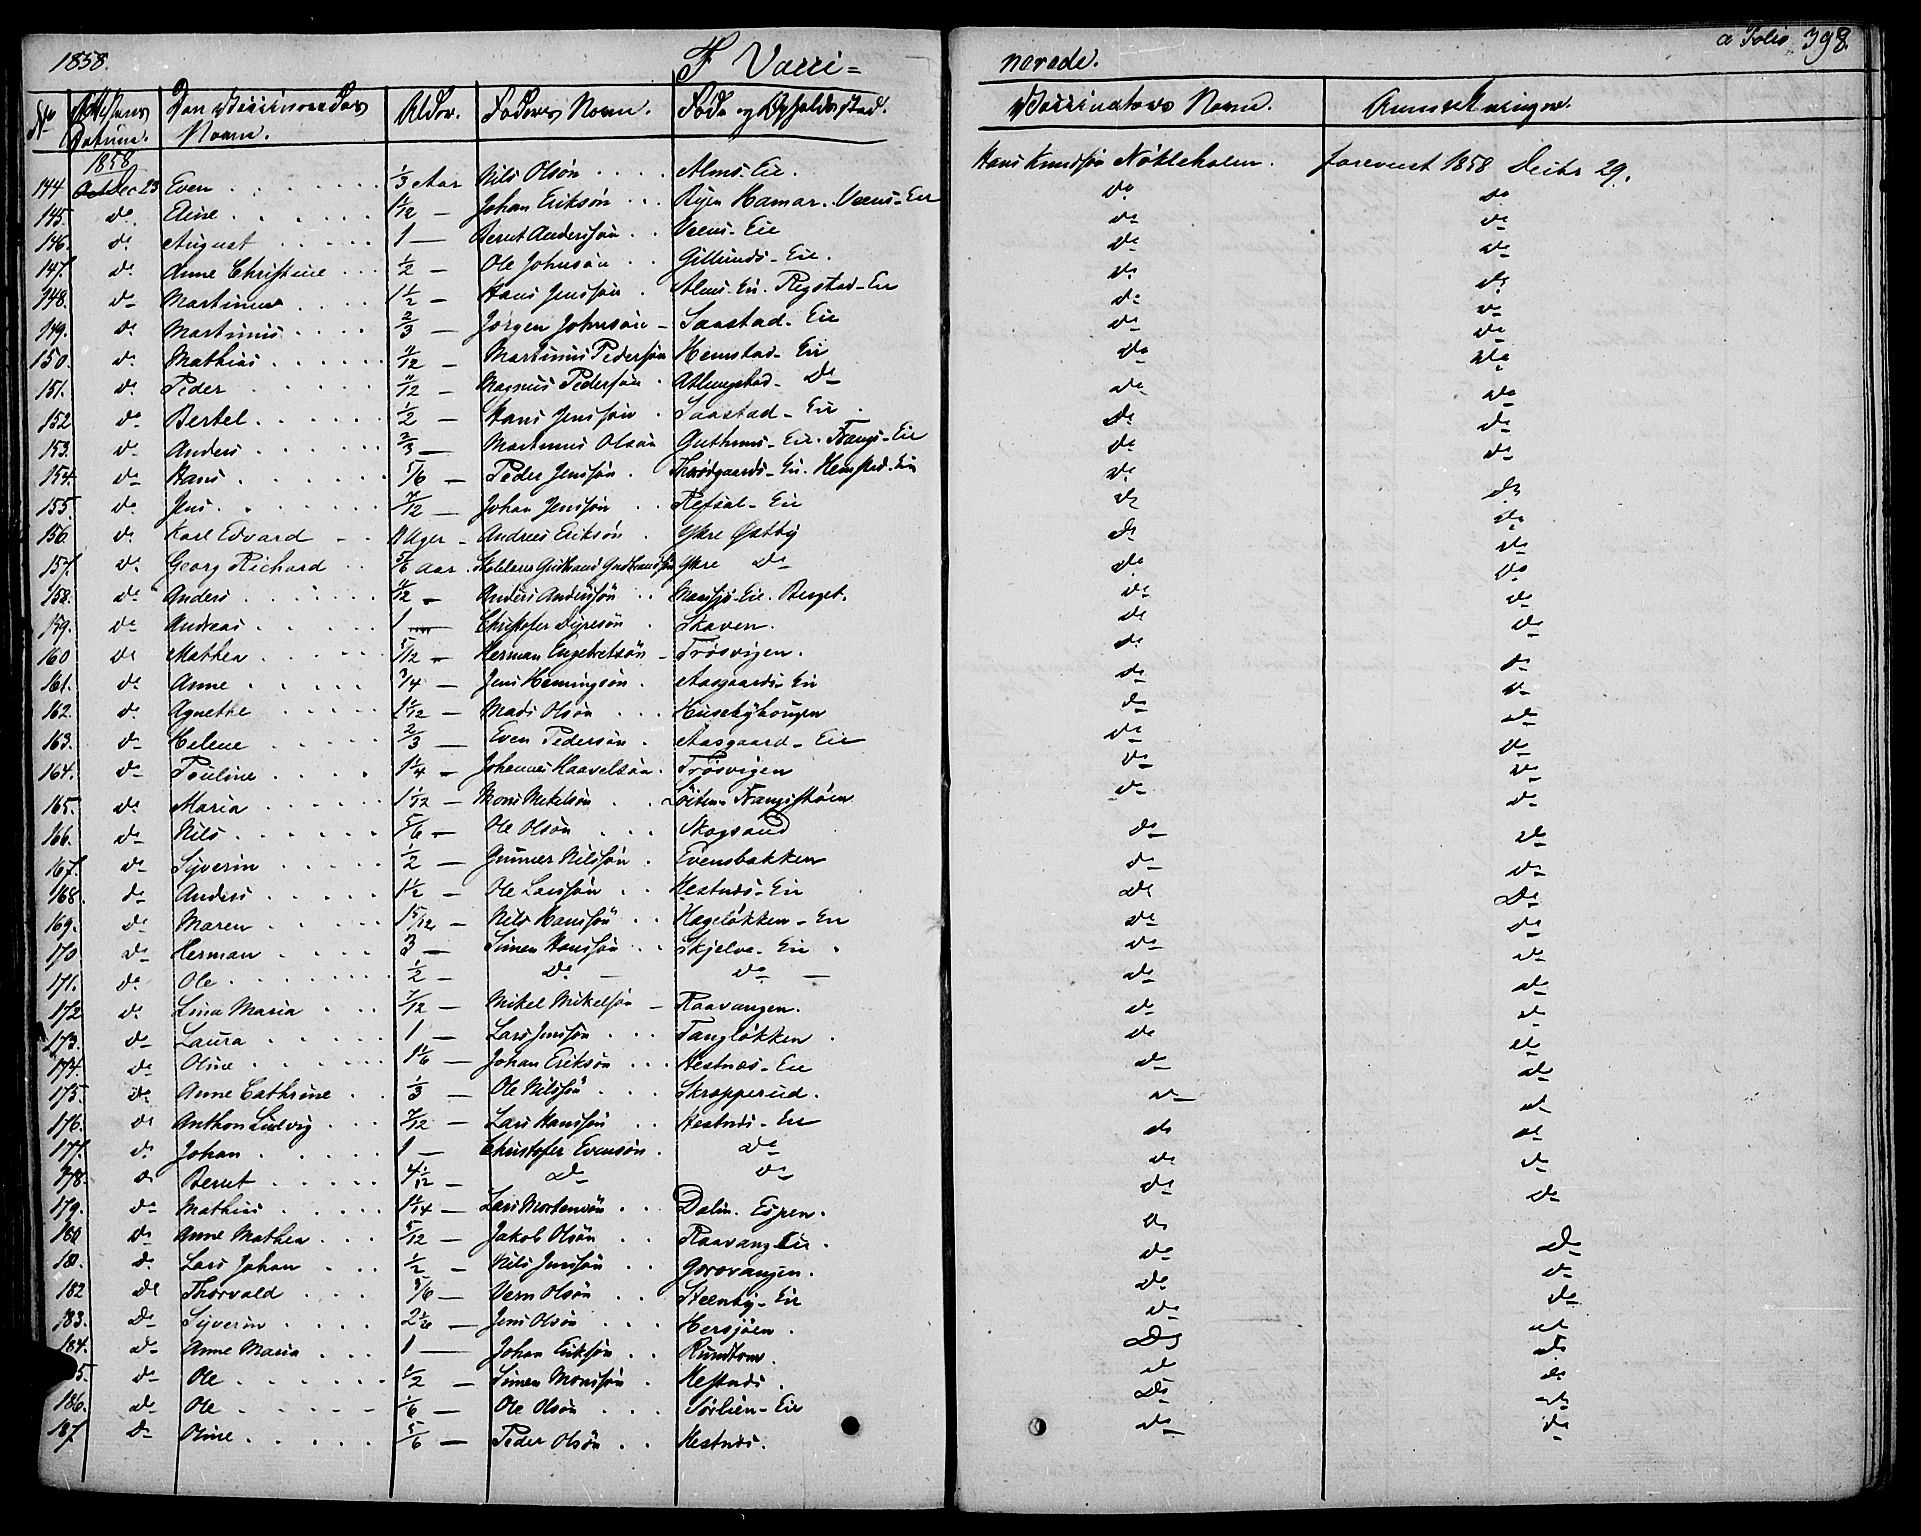 1858. F Vacci= nerede. a Folio 398.
No Attestens Datum. Den Vaccineredes Navn. Alder. Faderens Navn. Føde og Opholdsstad. Vaccinateurs Navn. Anmærkninger.
1858
144 Dec 23 Even 1/3 Aar Nils Olsøn Alms-Eie. Hans Knudsøn Nökleholm. foreviist 1858 Decbr 29.
145 do Eline 1 1/12 — Johan Eriksøn Ryen Hamar. Veens-Eie do do
146. do August 1 — Bernt Anderssøn Veens-Eie do do
147. do Anne Christine 1/2 — Ole Johnsøn Gillunds-Eie. do do
148. do Martinus 1 1/2 — Hans Jenssøn Alms-Eie. Regstad-Eie do do
149. do Martinus 2/3 — Jørgen Johnsøn Saastad-Eie do do
150. do Mathias 11/12 — Martinus Pedersøn Hemstad-Eie do do
151. do Peder 11/12 — Magnus Pedersøn Atlungstad- do do do
152 do Bertel 1/2 — Hans Jenssøn Saastad-Eie do do
153. do Anders 2/3 — Martinus Olsøn Guthuus-Eie. Frangs-Eie do do
154. do Hans 5/6 — Peder Jenssøn Thorsgaards-Eie. Hemstad-Eie do do
155. do Jens 7/12 — Johan Jenssøn Refsal-Eie do do
156. do Karl Edvard 11 Uger Andreas Eriksøn Ykre Østby do do
157. do Georg Richard 5/6 Aar Skolelærer Gudbrand Gudbrandsøn Ykre do do do
158. do Anders 11/12 — Anders Anderssøn -Eie. Berget. do do
159. do Andreas 1 — Christofer Dyresøn Skaven. do do
160 do Mathea 5/12 — Herman Engebretsøn Frøsvigen. do do
161. do Anne 3/4 — Jens Hemingsøn Aasgaards-Eie do do
162. do Agnethe 1 1/12 — Mads Olsøn Husebyhougen do do
163. do Helene 2/3 — Even Pedersøn Aasgaard-Eie do do
164. do Pauline 1 1/4 — Johannes Haavelsøn. Frøsvigen do do
165. do Maria 1 1/12 — Mons Mikelsøn Løiten Frangsstøen do do
166. do Nils 5/6 — Ole Olsøn Skogsand do do
167. do Syverin 1/2 — Gunner Nilssøn Evensbakken do do
168. do Anders 1 1/2 — Ole Larssøn Hestnæs-Eie do do
169. do Maren 1 5/12 — Nils Hanssøn Hageløkken-Eie do do
170 do Herman 3 — Simen Hanssøn Skjelve-Eie do do
171. do Ole 1/2 — do — do — do do
172 do Lina Maria 7/12 — Mikel Mikelsøn Raavangen. do do
173. do Laura 1 — Lars Jenssøn Tangløkken do do
174. do Oline 1 1/6 — Johan Eriksøn Hestnæs-Eie do do
175. do Anne Cathrine 1/3 — Ole Nilssøn Skrapperud. do do
176. do Anthon Ludvig 7/12 — Lars Hanssøn Hestnæs-Eie do do
177. do Johan 1 — Christofer Evensøn. do do do
178. do Bernt 4/12 — do do do do
179. do Mathias 1 1/4 — Lars Mortensøn Dalin. Espen. do do
180 do Anne Mathea 5/12 — Jakob Olsøn Raavang Eie. do do
181. do Lars Johan 1/2 — Nils Jenssøn Gorovangen. do do
182 do Thorvald 5/6 — Vern Olsøn Steenby-Eie do do
183. do Syverin 2 1/2 — Jens Olsøn Hersjøen. do do
184. do Anne Maria 1 — Johan Eriksøn Rundtom. do do
5. do Ole 1/2 — Simen Monssøn Hestnæs. do do
186. do Ole 1/6 — Ole Olsøn Sørlien-Eie do do
187. do Oline 5/6 — Peder Olsøn Hestnæs. do do